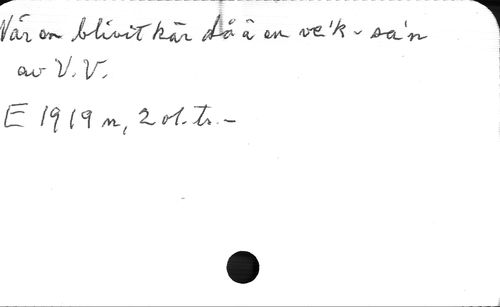 När en blivit kär då ä en ve'k - sa'n
av V.V.
E 1919 n, 2 ol. tr. -